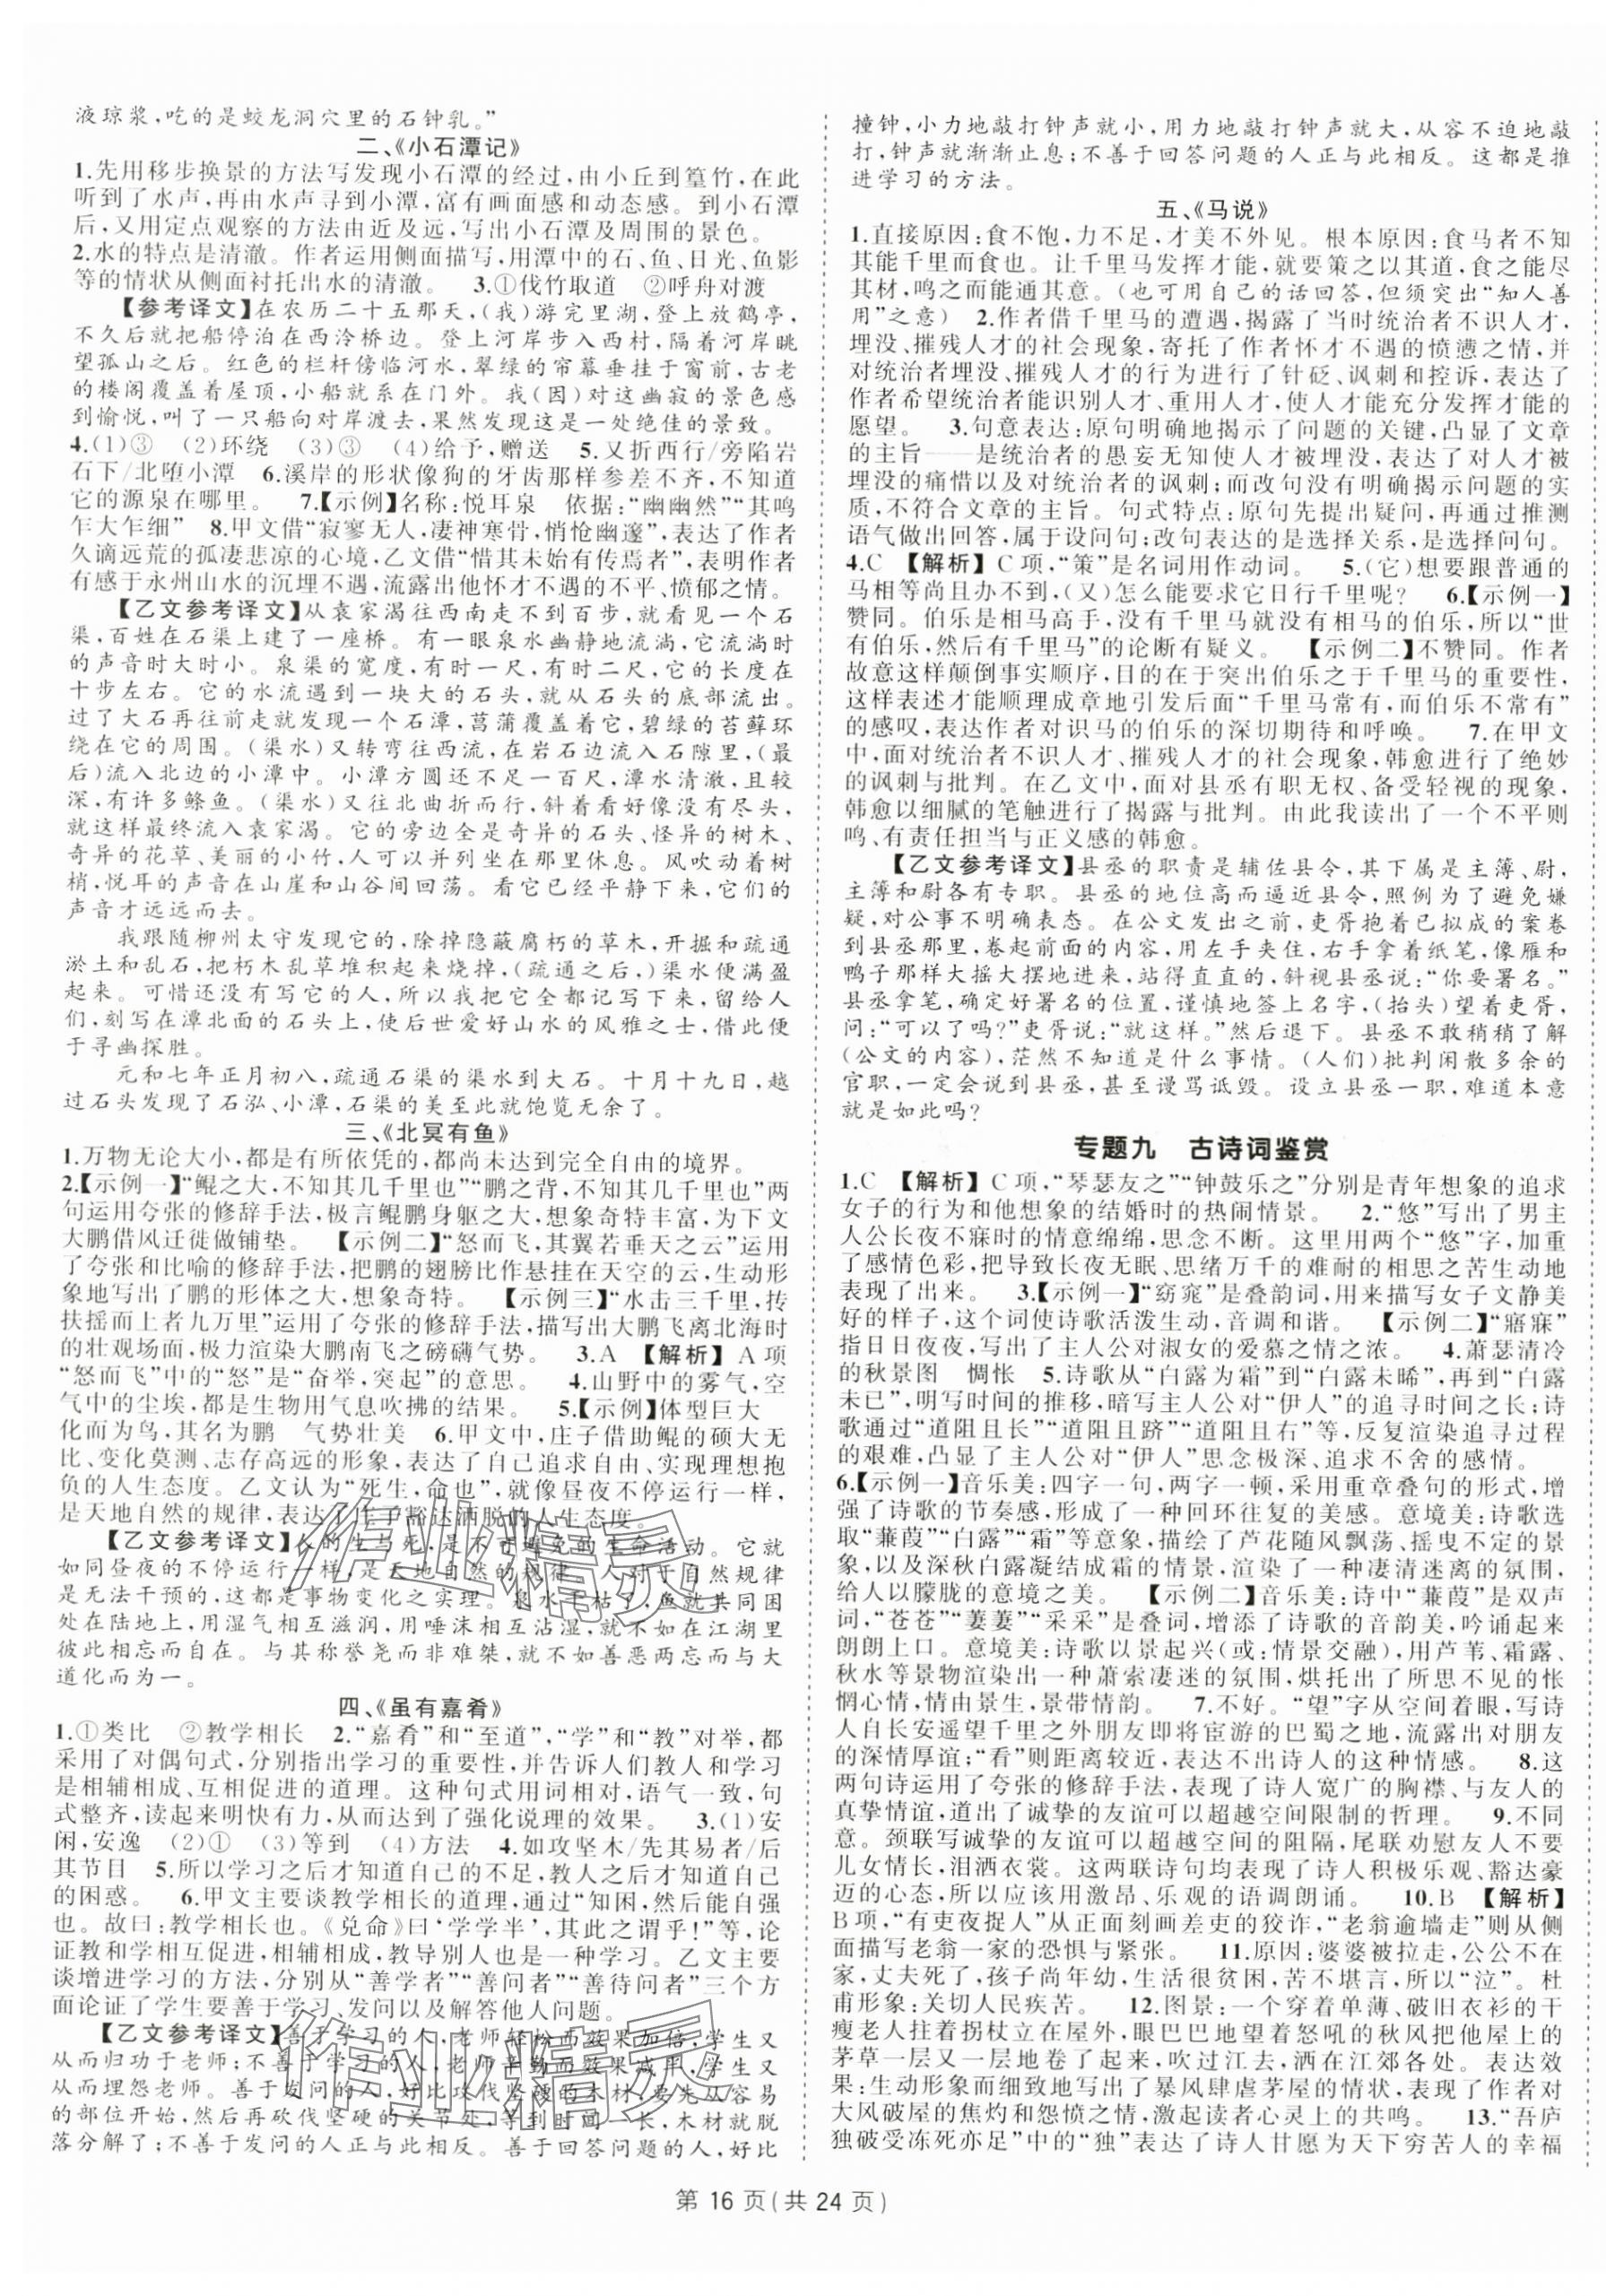 液琼浆,吃的是蛟龙洞穴里的石钟乳。”
二、《小石潭记》
1.先用移步换景的方法写发现小石潭的经过,由小丘到篁竹,在此
听到了水声,再由水声寻到小潭,富有画面感和动态感。到小石潭
后,又用定点观察的方法由近及远,写出小石潭及周围的景色。
2.水的特点是清澈。作者运用侧面描写,用潭中的石、鱼、日光、鱼影
等的情状从侧面衬托出水的清澈。 3.①伐竹取道 ②呼舟对渡
【参考译文】在农历二十五那天,(我)游完里湖,登上放鹤亭,
不久后就把船停泊在西泠桥边。登上河岸步入西村,隔着河岸眺
望孤山之后。红色的栏杆傍临河水,翠绿的帘幕垂挂于窗前,古老
的楼阁覆盖着屋顶,小船就系在门外。我(因)对这幽寂的景色感
到愉悦,叫了一只船向对岸渡去,果然发现这是一处绝佳的景致。
4.(1)③ (2)环绕 (3)③ (4)给予,赠送 5.又折西行/旁陷岩
石下/北堕小潭 6.溪岸的形状像狗的牙齿那样参差不齐,不知道
它的源泉在哪里。 7.【示例】名称:悦耳泉 依据:“幽幽然”“其鸣
乍大乍细” 8.甲文借“寂寥无人,凄神寒骨,悄怆幽邃”,表达了作者
久谪远荒的孤凄悲凉的心境,乙文借“惜其未始有传焉者”,表明作者
有感于永州山水的沉埋不遇,流露出他怀才不遇的不平、愤郁之情。
【乙文参考译文】从袁家渴往西南走不到百步,就看见一个石
渠,百姓在石渠上建了一座桥。有一眼泉水幽静地流淌,它流淌时
的声音时大时小。泉渠的宽度,有时一尺,有时二尺,它的长度在
十步左右。它的水流遇到一块大的石头,就从石头的底部流出。
过了大石再往前走就发现一个石潭,菖蒲覆盖着它,碧绿的苔藓环
绕在它的周围。(渠水)又转弯往西流,在岩石边流入石隙里,(最
后)流入北边的小潭中。小潭方圆还不足一百尺,潭水清澈,且较
深,有许多鲦鱼。(渠水)又往北曲折而行,斜着看好像没有尽头,
就这样最终流入袁家渴。它的旁边全是奇异的石头、怪异的树木、
奇异的花草、美丽的小竹,人可以并列坐在那里休息。风吹动着树
梢,悦耳的声音在山崖和山谷间回荡。看它已经平静下来,它们的
声音才远远而去。
我跟随柳州太守发现它的,除掉隐蔽腐朽的草木,开掘和疏通
淤土和乱石,把朽木乱草堆积起来烧掉,(疏通之后,)渠水便满盈
起来。可惜还没有写它的人,所以我把它全都记写下来,留给人
们,刻写在潭北面的石头上,使后世爱好山水的风雅之士,借此便
于寻幽探胜。
元和七年正月初八,疏通石渠的渠水到大石。十月十九日,越
过石头发现了石泓、小潭,石渠的美至此就饱览无余了。
三、《北冥有鱼》
1.万物无论大小,都是有所依凭的,都尚未达到完全自由的境界。
2.【示例一】“鲲之大,不知其几千里也”“鹏之背,不知其几千里也”两
句运用夸张的修辞手法,极言鲲鹏身躯之大,想象奇特丰富,为下文
大鹏借风迁徙做铺垫。 【示例二】“怒而飞,其翼若垂天之云”运用
了夸张和比喻的修辞手法,把鹏的翅膀比作悬挂在天空的云,生动形
象地写出了鹏的形体之大,想象奇特。 【示例三】“水击三千里,抟
扶摇而上者九万里”运用了夸张的修辞手法,描写出大鹏飞离北海时
的壮观场面,极力渲染大鹏南飞之磅礴气势。 3.A 【解析】A项
“怒而飞”中的“怒”是“奋举,突起”的意思。 4.山野中的雾气,空
气中的尘埃,都是生物用气息吹拂的结果。 5.【示例】体型巨大
化而为鸟,其名为鹏 气势壮美 6.甲文中,庄子借助鲲的硕大无
比、变化莫测、志存高远的形象,表达了自己追求自由、实现理想抱
负的人生态度。乙文认为“死生,命也”,就像昼夜不停运行一样,
是天地自然的规律,表达了庄子豁达洒脱的人生态度。
【乙文参考译文】人的生与死,是不可避免的生命活动。它就
如同昼夜的不停运行一样,是天地自然的规律。人对于自然规律
是无法干预的,这都是事物变化之实理。泉水干枯了,鱼就共同困
处在陆地上,用湿气相互滋润,用唾沫相互沾湿,就不如在江湖里
彼此相忘而自在。与其称誉尧而非难桀,就不如善恶两忘而与大
道化而为一。
四、《虽有嘉肴》
1.①类比 ②教学相长 2.“嘉肴”和“至道”,“学”和“教”对举,都
采用了对偶句式,分别指出学习的重要性,并告诉人们教人和学习
是相辅相成、互相促进的道理。这种句式用词相对,语气一致,句
式整齐,读起来明快有力,从而达到了强化说理的效果。 3.(1)安
闲,安逸 (2)① (3)等到 (4)方法 4.如攻坚木/先其易者/后
其节目 5.所以学习之后才知道自己的不足,教人之后才知道自己
的困惑。 6.甲文主要谈教学相长的道理,通过“知困,然后能自强
也。故曰:教学相长也。《兑命》曰‘学学半’,其此之谓乎!”等,论
证教和学相互促进,相辅相成,教导别人也是一种学习。乙文主要
谈增进学习的方法,分别从“善学者”“善问者”“善待问者”三个方
面论证了学生要善于学习、发问以及解答他人问题。
【乙文参考译文】善于学习的人,老师轻松而效果加倍,学生又
从而归功于老师;不善于学习的人,老师辛勤而效果减半,学生又
从而埋怨老师。善于发问的人,好比攻伐坚硬的木材,要先从容易
的部位开始,然后再砍伐坚硬的关节处,等到时间一长,木材就脱
落分解了;不善于发问的人正与此相反。善于回答问题的人,好比
撞钟,小力地敲打钟声就小,用力地敲打钟声就大,从容不迫地敲
打,钟声就渐渐止息;不善于回答问题的人正与此相反。这都是推
进学习的方法。
五、《马说》
1.直接原因:食不饱,力不足,才美不外见。根本原因:食马者不知
其能千里而食也。让千里马发挥才能,就要策之以其道,食之能尽
其材,鸣之而能通其意。(也可用自己的话回答,但须突出“知人善
用”之意) 2.作者借千里马的遭遇,揭露了当时统治者不识人才,
埋没、摧残人才的社会现象,寄托了作者怀才不遇的愤懑之情,并
对统治者埋没、摧残人才的行为进行了针砭、讽刺和控诉,表达了
作者希望统治者能识别人才、重用人才,使人才能充分发挥才能的
愿望。 3.句意表达:原句明确地揭示了问题的关键,凸显了文章
的主旨——是统治者的愚妄无知使人才被埋没,表达了对人才被
埋没的痛惜以及对统治者的讽刺;而改句没有明确揭示问题的实
质,不符合文章的主旨。句式特点:原句先提出疑问,再通过推测
语气做出回答,属于设问句;改句表达的是选择关系,是选择问句。
4.C 【解析】C项,“策”是名词用作动词。 5.(它)想要跟普通的
马相等尚且办不到,(又)怎么能要求它日行千里呢? 6.【示例一】
赞同。伯乐是相马高手,没有千里马就没有相马的伯乐,所以“世
有伯乐,然后有千里马”的论断有疑义。 【示例二】不赞同。作者
故意这样颠倒事实顺序,目的在于突出伯乐之于千里马的重要性,
这样表述才能顺理成章地引发后面“千里马常有,而伯乐不常有”
的感叹,表达作者对识马的伯乐的深切期待和呼唤。 7.在甲文
中,面对统治者不识人才、摧残人才的社会现象,韩愈进行了绝妙
的讽刺与批判。在乙文中,面对县丞有职无权、备受轻视的现象,
韩愈以细腻的笔触进行了揭露与批判。由此我读出了一个不平则
鸣、有责任担当与正义感的韩愈。
【乙文参考译文】县丞的职责是辅佐县令,其下属是主簿、尉,
主簿和尉各有专职。县丞的地位高而逼近县令,照例为了避免嫌
疑,对公事不明确表态。在公文发出之前,吏胥抱着已拟成的案卷
到县丞那里,卷起前面的内容,用左手夹住,右手拿着纸笔,像雁和
鸭子那样大摇大摆地进来,站得直直的,斜视县丞说:“你要署名。”
县丞拿笔,确定好署名的位置,谨慎地签上名字,(抬头)望着吏胥,
问:“可以了吗?”吏胥说:“就这样。”然后退下。县丞不敢稍稍了解
(公文的内容),茫然不知道是什么事情。(人们)批判闲散多余的
官职,一定会说到县丞,甚至谩骂诋毁。设立县丞一职,难道本意
就是如此吗?
专题九 古诗词鉴赏
1.C 【解析】C项,“琴瑟友之”“钟鼓乐之”分别是青年想象的追求
女子的行为和他想象的结婚时的热闹情景。 2.“悠”写出了男主
人公长夜不寐时的情意绵绵,思念不断。这里用两个“悠”字,加重
了感情色彩,把导致长夜无眠、思绪万千的难耐的相思之苦生动地
表现了出来。 3.【示例一】“窈窕”是叠韵词,用来描写女子文静美
好的样子,这个词使诗歌活泼生动,音调和谐。 【示例二】“寤寐”
指日日夜夜,写出了主人公对淑女的爱慕之情之浓。 4.萧瑟清冷
的秋景图 惆怅 5.诗歌从“白露为霜”到“白露未晞”,再到“白露
未已”,明写时间的推移,暗写主人公对“伊人”的追寻时间之长;诗
歌通过“道阻且长”“道阻且跻”“道阻且右”等,反复渲染追寻过程
的艰难,凸显了主人公对“伊人”思念极深、追求不舍的感情。
6.【示例一】音乐美:四字一句,两字一顿,采用重章叠句的形式,增
强了诗歌的节奏感,形成了一种回环往复的美感。意境美:诗歌选
取“蒹葭”“白露”“霜”等意象,描绘了芦花随风飘荡、摇曳不定的景
象,以及深秋白露凝结成霜的情景,渲染了一种凄清迷离的氛围,
给人以朦胧的意境之美。 【示例二】音乐美:诗中“蒹葭”是双声
词,“苍苍”“萋萋”“采采”是叠词,增添了诗歌的音韵美,吟诵起来
朗朗上口。意境美:诗歌以景起兴(或:情景交融),用芦苇、霜露、
秋水等景物渲染出一种萧索凄迷的氛围,烘托出了所思不见的怅
惘心情,情由景生,景带情韵。 7.不好。“望”字从空间着眼,写诗
人自长安遥望千里之外朋友即将宦游的巴蜀之地,流露出对朋友
的深情厚谊;“看”则距离较近,表达不出诗人的这种情感。 8.这
两句诗运用了夸张的修辞手法,表现了诗人宽广的胸襟、与友人的
真挚情谊,道出了诚挚的友谊可以超越空间限制的哲理。 9.不同
意。颈联写诚挚的友谊可以超越空间的阻隔,尾联劝慰友人不要
儿女情长,泪洒衣裳。这两联诗句均表现了诗人积极乐观、豁达豪
迈的心态,所以应该用激昂、乐观的语调朗诵。 10.B 【解析】
B项,“有吏夜捉人”从正面刻画差吏的狡诈,“老翁逾墙走”则从侧
面描写老翁一家的恐惧与紧张。 11.原因:婆婆被拉走,公公不在
家,丈夫死了,孩子尚年幼,生活很贫困,苦不堪言,所以“泣”。杜
甫形象:关切人民疾苦。 12.图景:一个穿着单薄、破旧衣衫的干
瘦老人拄着拐杖立在屋外,眼巴巴地望着怒吼的秋风把他屋上的
茅草一层又一层地卷了起来,吹过江去,洒在江郊各处。表达效
果:生动形象而细致地写出了暴风肆虐茅屋的情状,表现了作者对
大风破屋的焦灼和怨愤之情,激起读者心灵上的共鸣。 13.“吾庐
独破受冻死亦足”中的“独”表达了诗人甘愿为天下穷苦人的幸福
第 16 页(共 24 页)
作业精灵
作业精灵